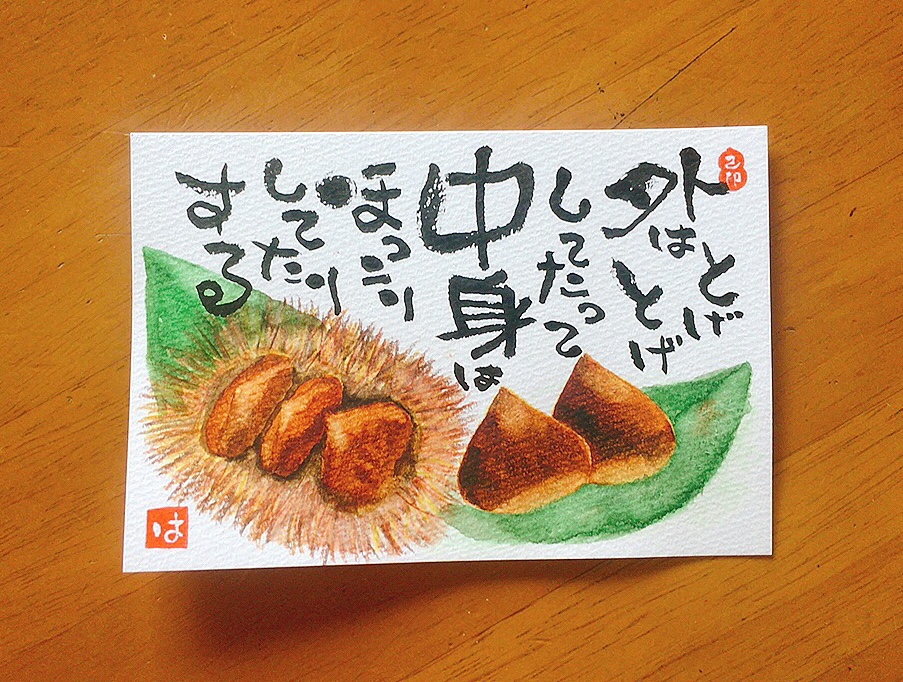 外はとげとげ
してたって
中身は
ほっこり
してたり
する
は